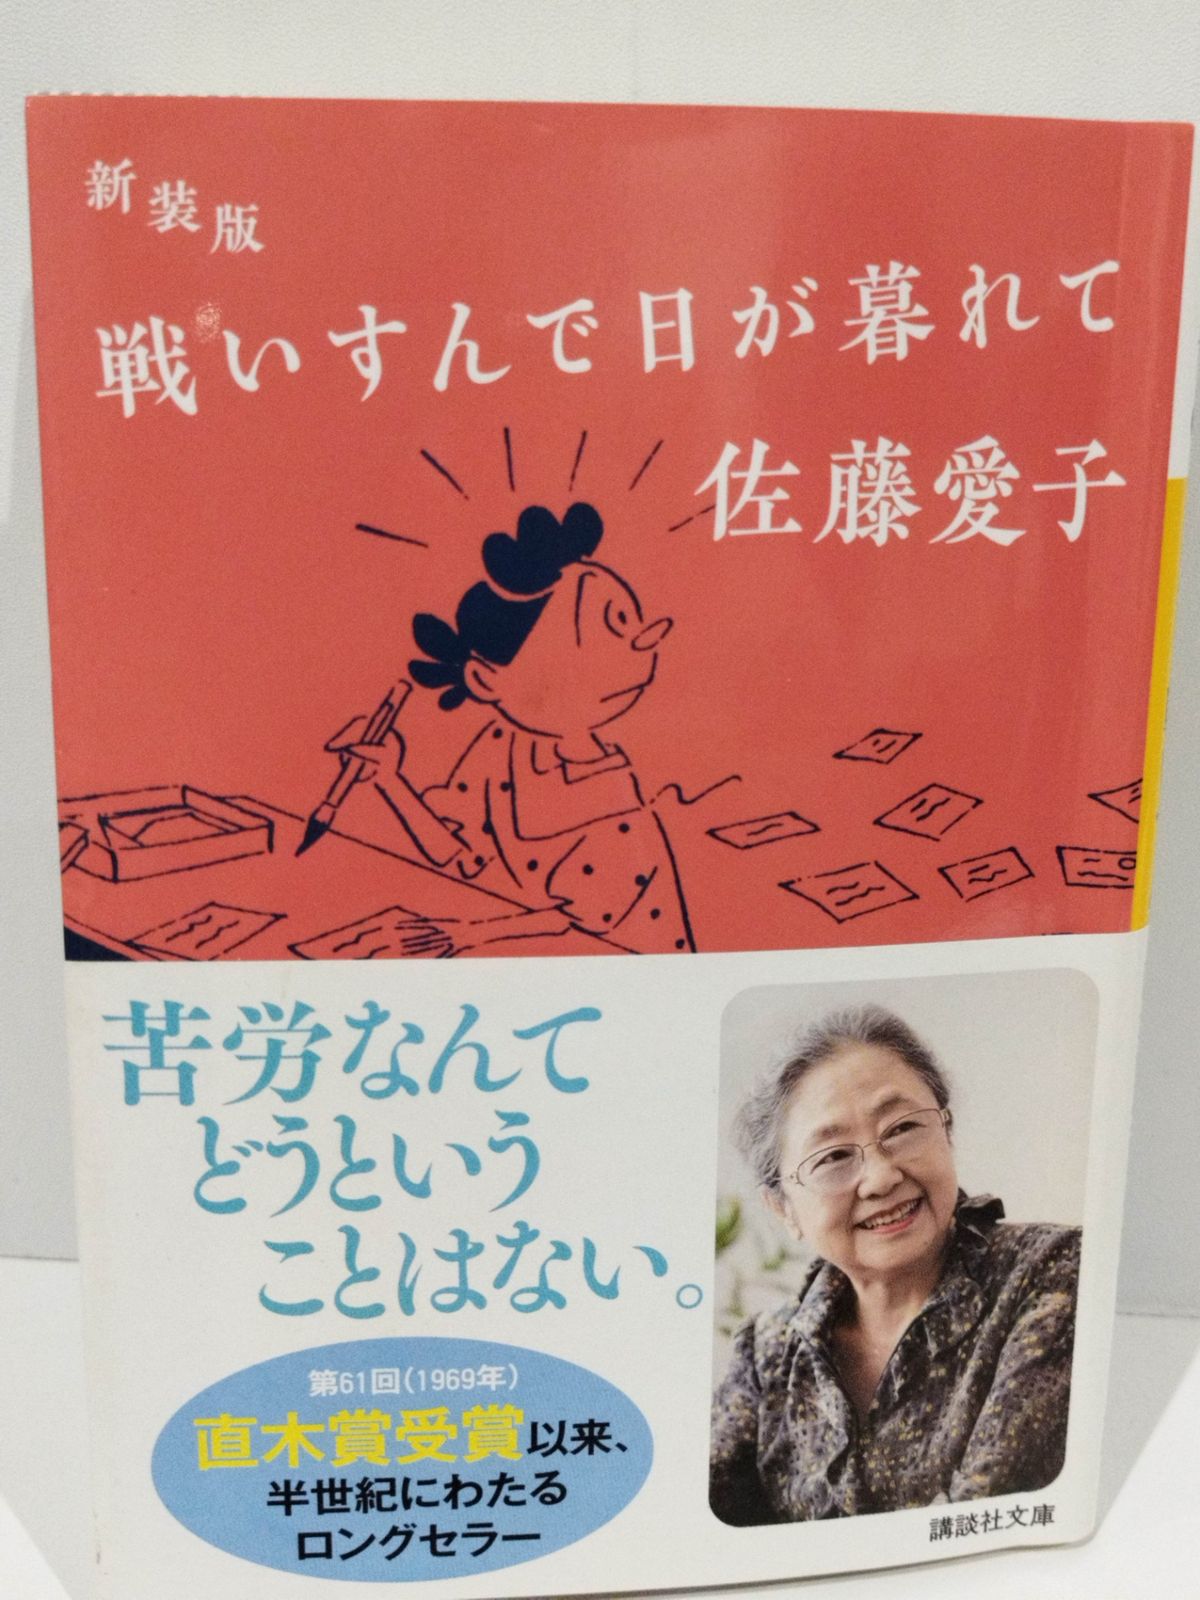 新装版
戦いすんで日が暮れて
佐藤愛子
苦労なんて
どうという
ことはない。
第61回(1969年)
直木賞受賞以来、
半世紀にわたる
ロングセラー
講談社文庫